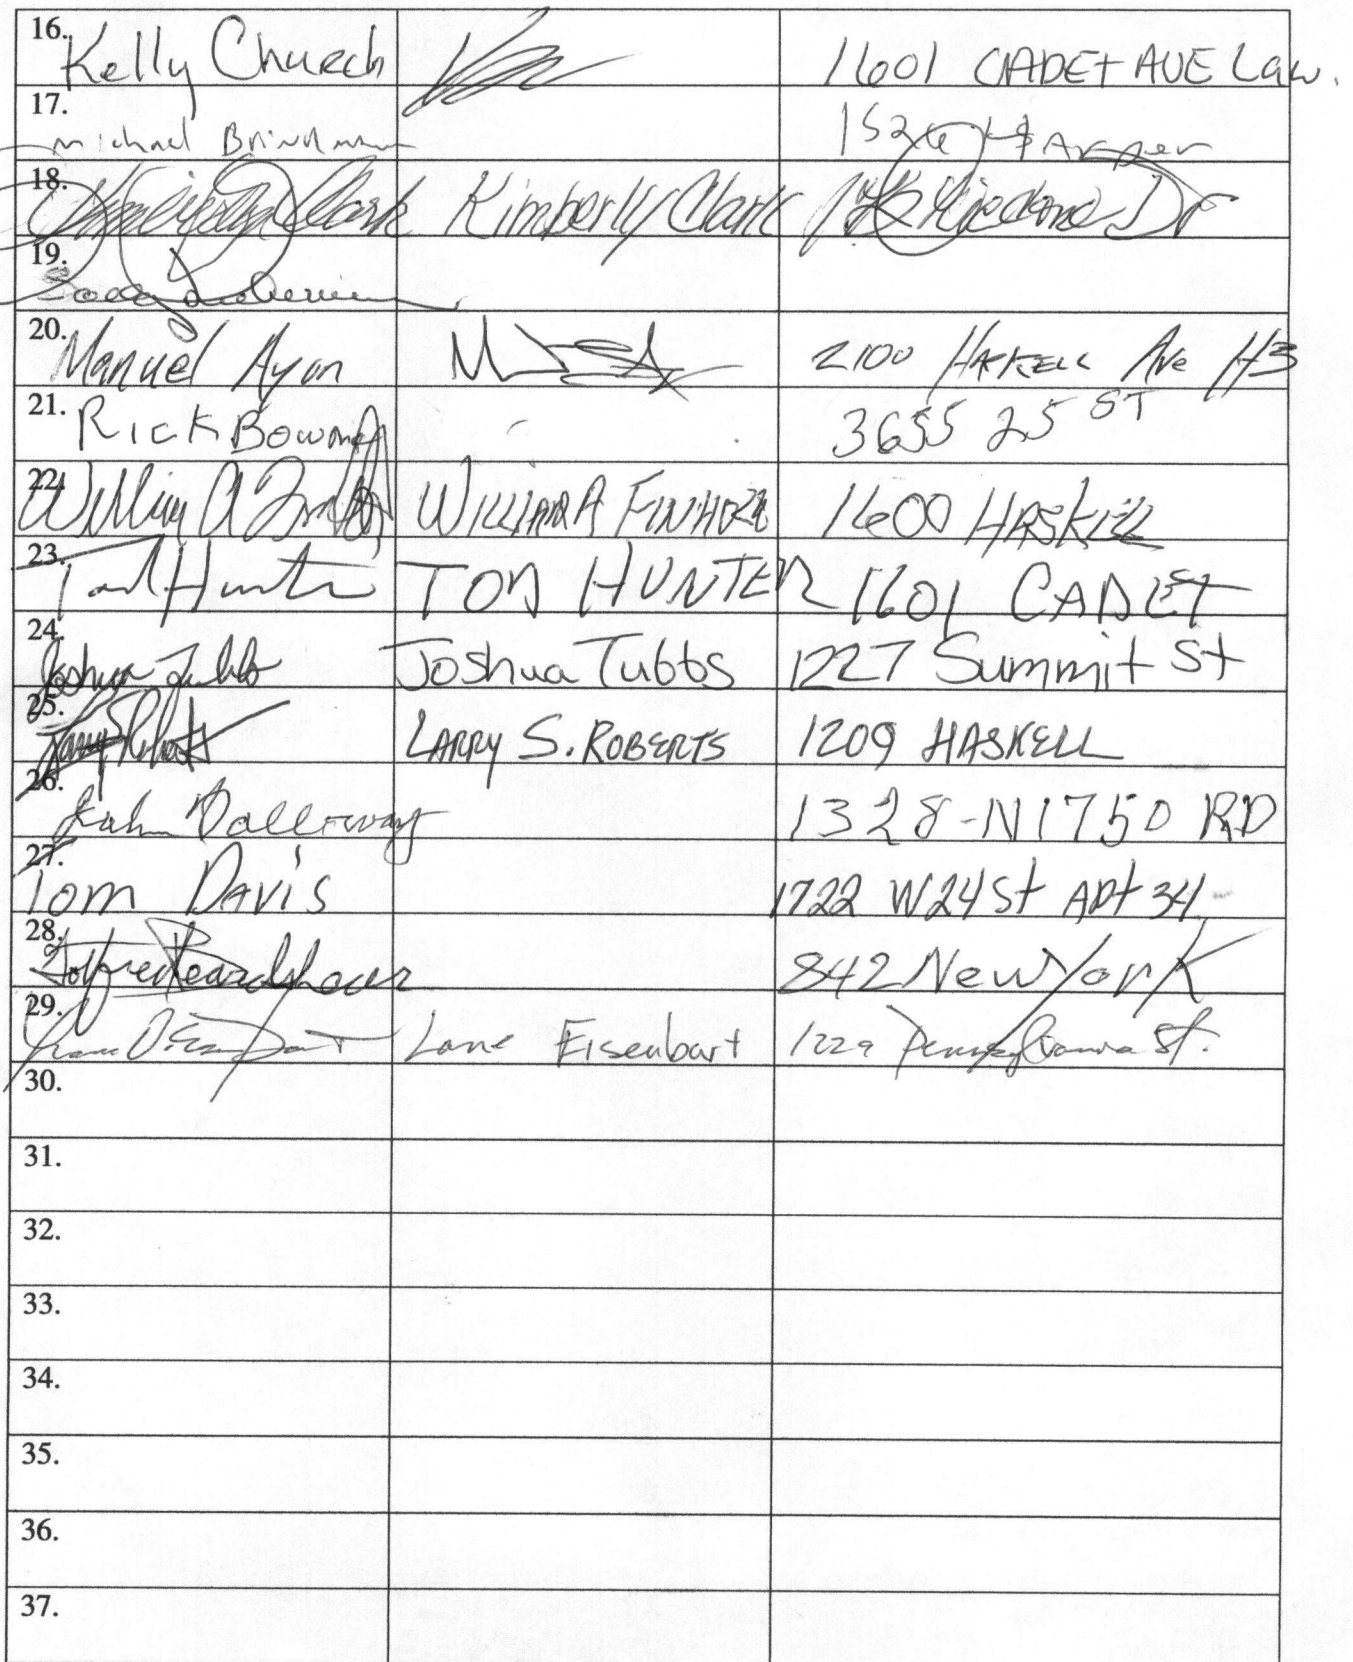 16. Kelly Church 1601 CADET AVE Law.
17. Michael Brinkman 1526 Harper
18. Kimberly Clark Kimberly Clark Dr
19.
20. Manuel Ayon 2100 HASKELL Ave H3
21. Rick Bowman 3655 25 ST
22. William A WILLIAM A FINHOLM 1600 HASKELL
23. Tom Hunter TOM HUNTER 1601 CADET
24. Joshua Tubbs Joshua Tubbs 1227 Summit St
25. LARRY S. ROBERTS 1209 HASKELL
26. 1328-N1750 RD
27. Tom DAVIS 1722 W24St APt 34
28. Beardshear 842 New York
29. Lane Eisenbart 1229 Pennsylvania St.
30.
31.
32.
33.
34.
35.
36.
37.